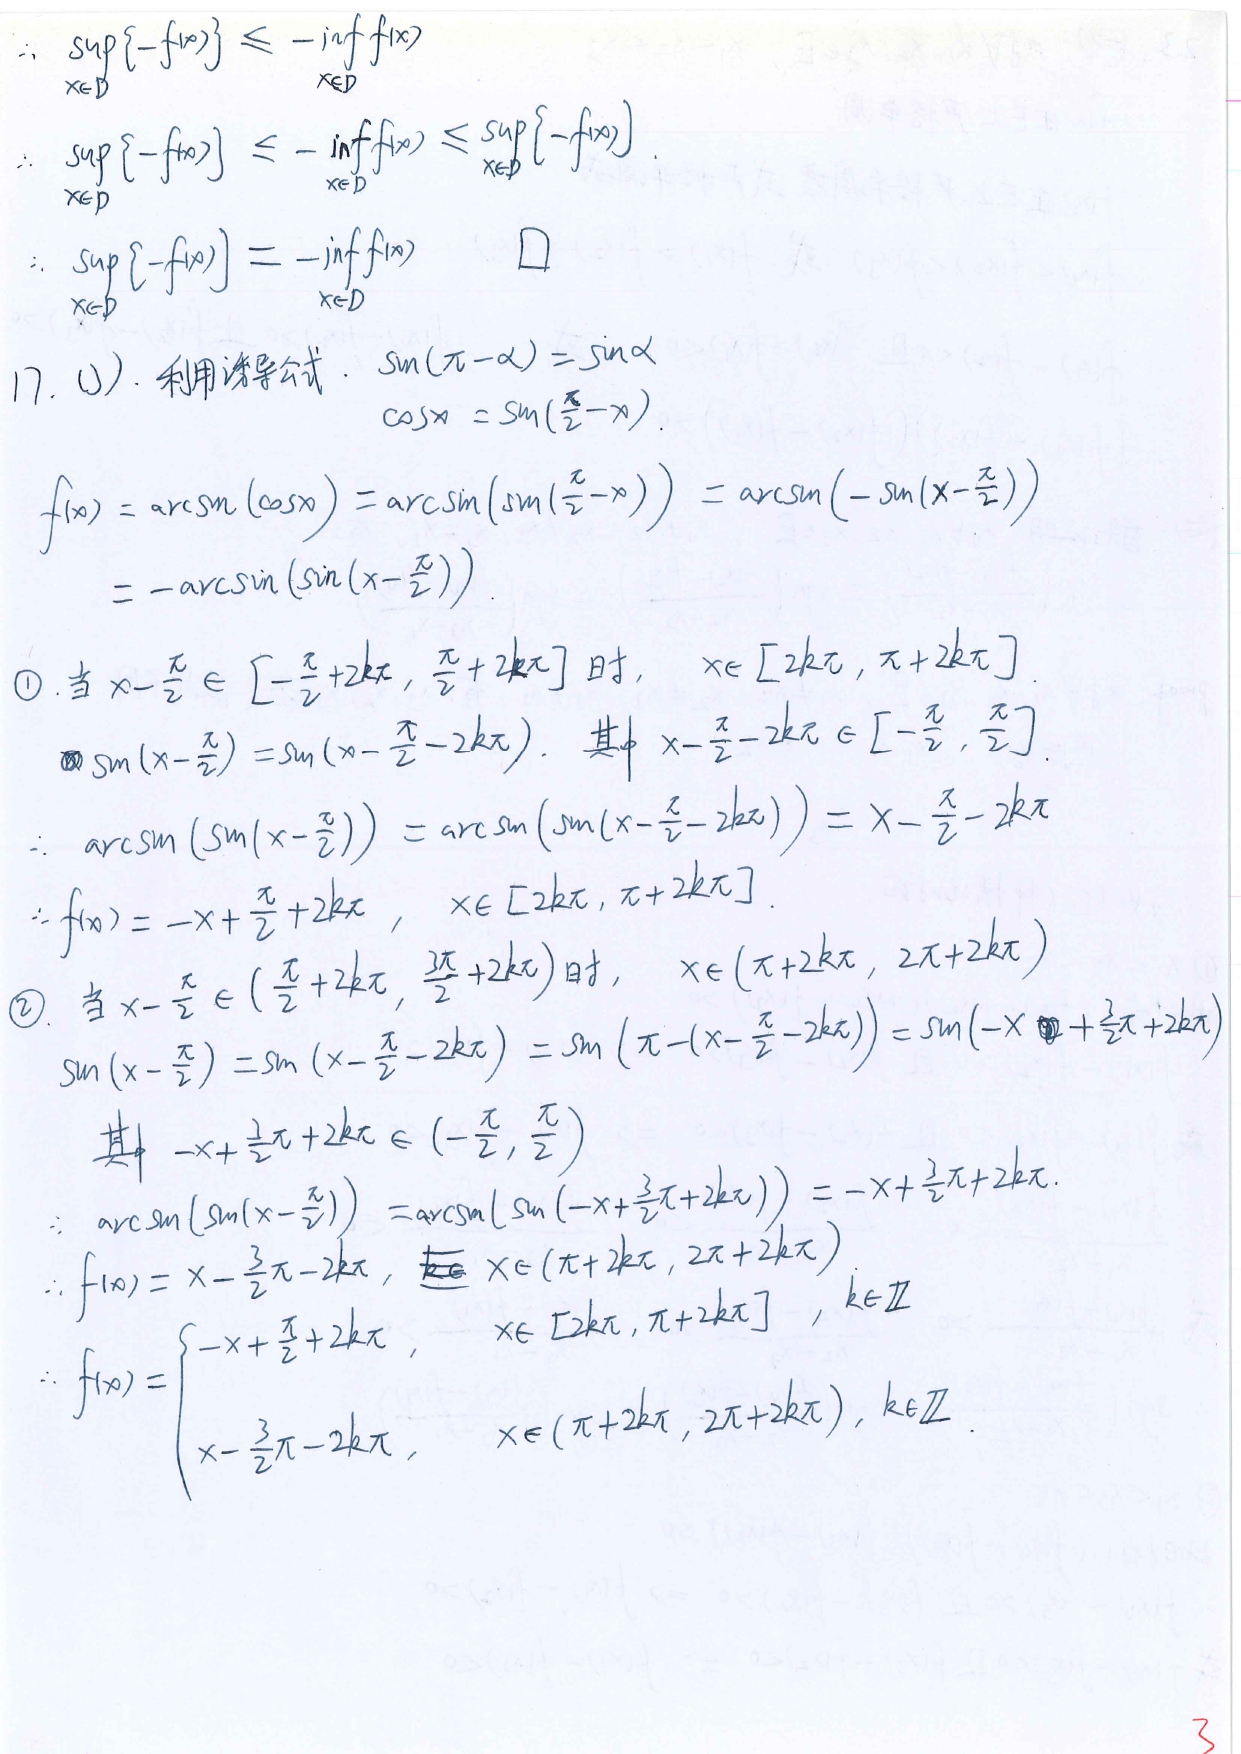 ∴ sup_{x∈D}{-f(x)} ≤ -inf_{x∈D} f(x)
∴ sup_{x∈D}{-f(x)} ≤ -inf_{x∈D} f(x) ≤ sup_{x∈D}{-f(x)}.
∴ sup_{x∈D}{-f(x)} = -inf_{x∈D} f(x) □
17. (1). 利用诱导公式. sin(π-α) = sinα
cosx = sin(π/2-x).
f(x) = arcsin(cosx) = arcsin(sin(π/2-x)) = arcsin(-sin(x-π/2))
= -arcsin(sin(x-π/2)).
①. 当 x-π/2 ∈ [-π/2+2kπ, π/2+2kπ] 时, x∈[2kπ, π+2kπ].
sin(x-π/2) = sin(x-π/2-2kπ). 其中 x-π/2-2kπ ∈ [-π/2, π/2].
∴ arcsin(sin(x-π/2)) = arcsin(sin(x-π/2-2kπ)) = x-π/2-2kπ
∴ f(x) = -x+π/2+2kπ, x∈[2kπ, π+2kπ].
②. 当 x-π/2 ∈ (π/2+2kπ, 3π/2+2kπ) 时, x∈(π+2kπ, 2π+2kπ)
sin(x-π/2) = sin(x-π/2-2kπ) = sin(π-(x-π/2-2kπ)) = sin(-x+3/2π+2kπ)
其中 -x+3/2π+2kπ ∈ (-π/2, π/2)
∴ arcsin(sin(x-π/2)) = arcsin(sin(-x+3/2π+2kπ)) = -x+3/2π+2kπ.
∴ f(x) = x-3/2π-2kπ, x∈(π+2kπ, 2π+2kπ).
∴ f(x) = { -x+π/2+2kπ, x∈[2kπ, π+2kπ], k∈ℤ
x-3/2π-2kπ, x∈(π+2kπ, 2π+2kπ), k∈ℤ.
3